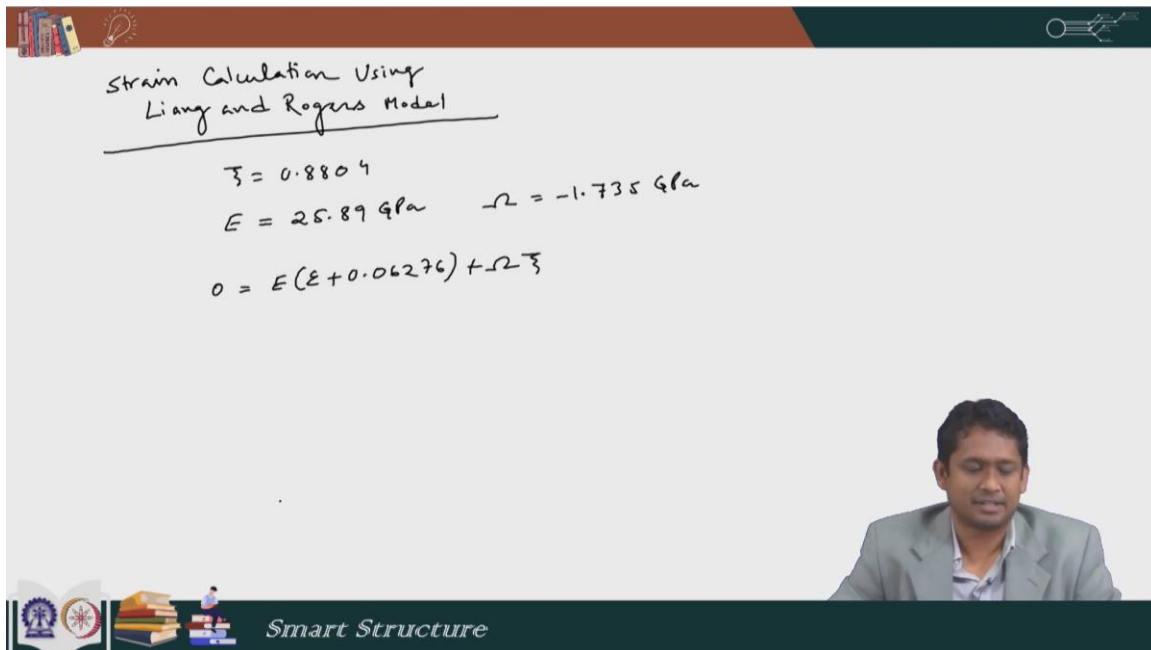 Strain Calculation Using
Liang and Rogers Model
ξ = 0.8804
E = 25.89 GPa Ω = -1.735 GPa
0 = E(ε + 0.06276) + Ω ξ
Smart Structure